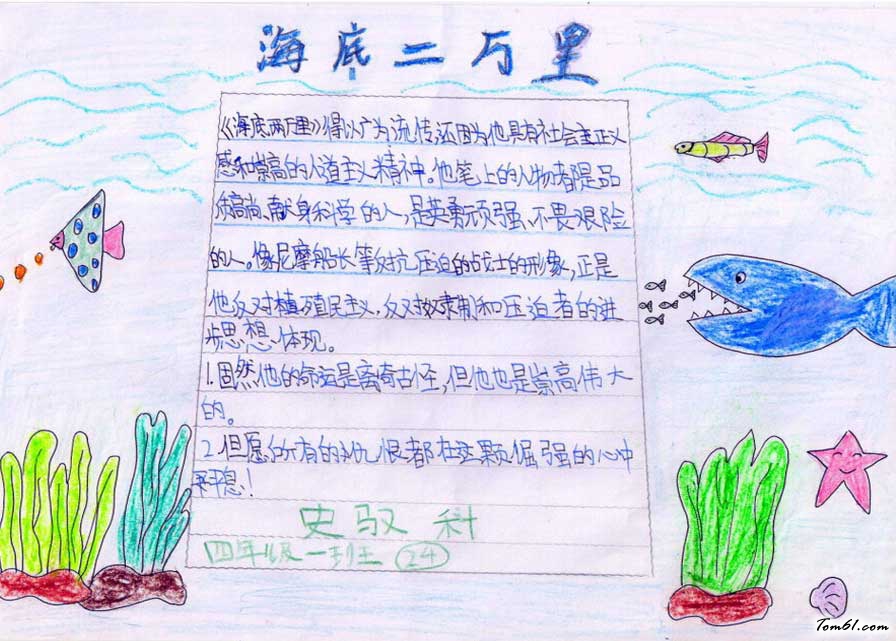 海底二万里
《海底两万里》得以广为流传,还因为他具有社会主正义
感和崇高的人道主义精神。他笔上的人物都是品
质高尚、献身科学的人,是英勇顽强、不畏艰险
的人。像尼摩船长等反抗压迫的战士的形象,正是
他反对植殖民主义,反对奴隶制和压迫者的进
步思想体现。
1.固然,他的命运是离奇古怪,但他也是崇高伟大
的。
2.但愿所有的仇恨都在这颗倔强的心中
平息!
史驭科
四年级一班 24
Tom61.com